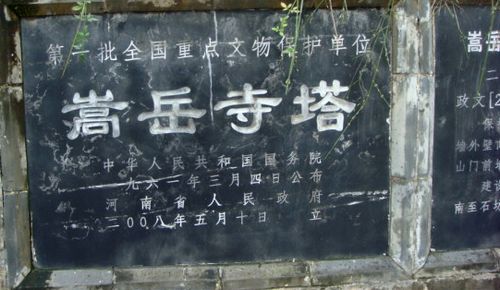 第一批全国重点文物保护单位
嵩岳寺塔
中华人民共和国国务院
一九六一年三月四日公布
河南省人民政府
二〇〇八年五月十日 立
嵩岳
政文[2
保
外壁
山门前
建
南至石坊